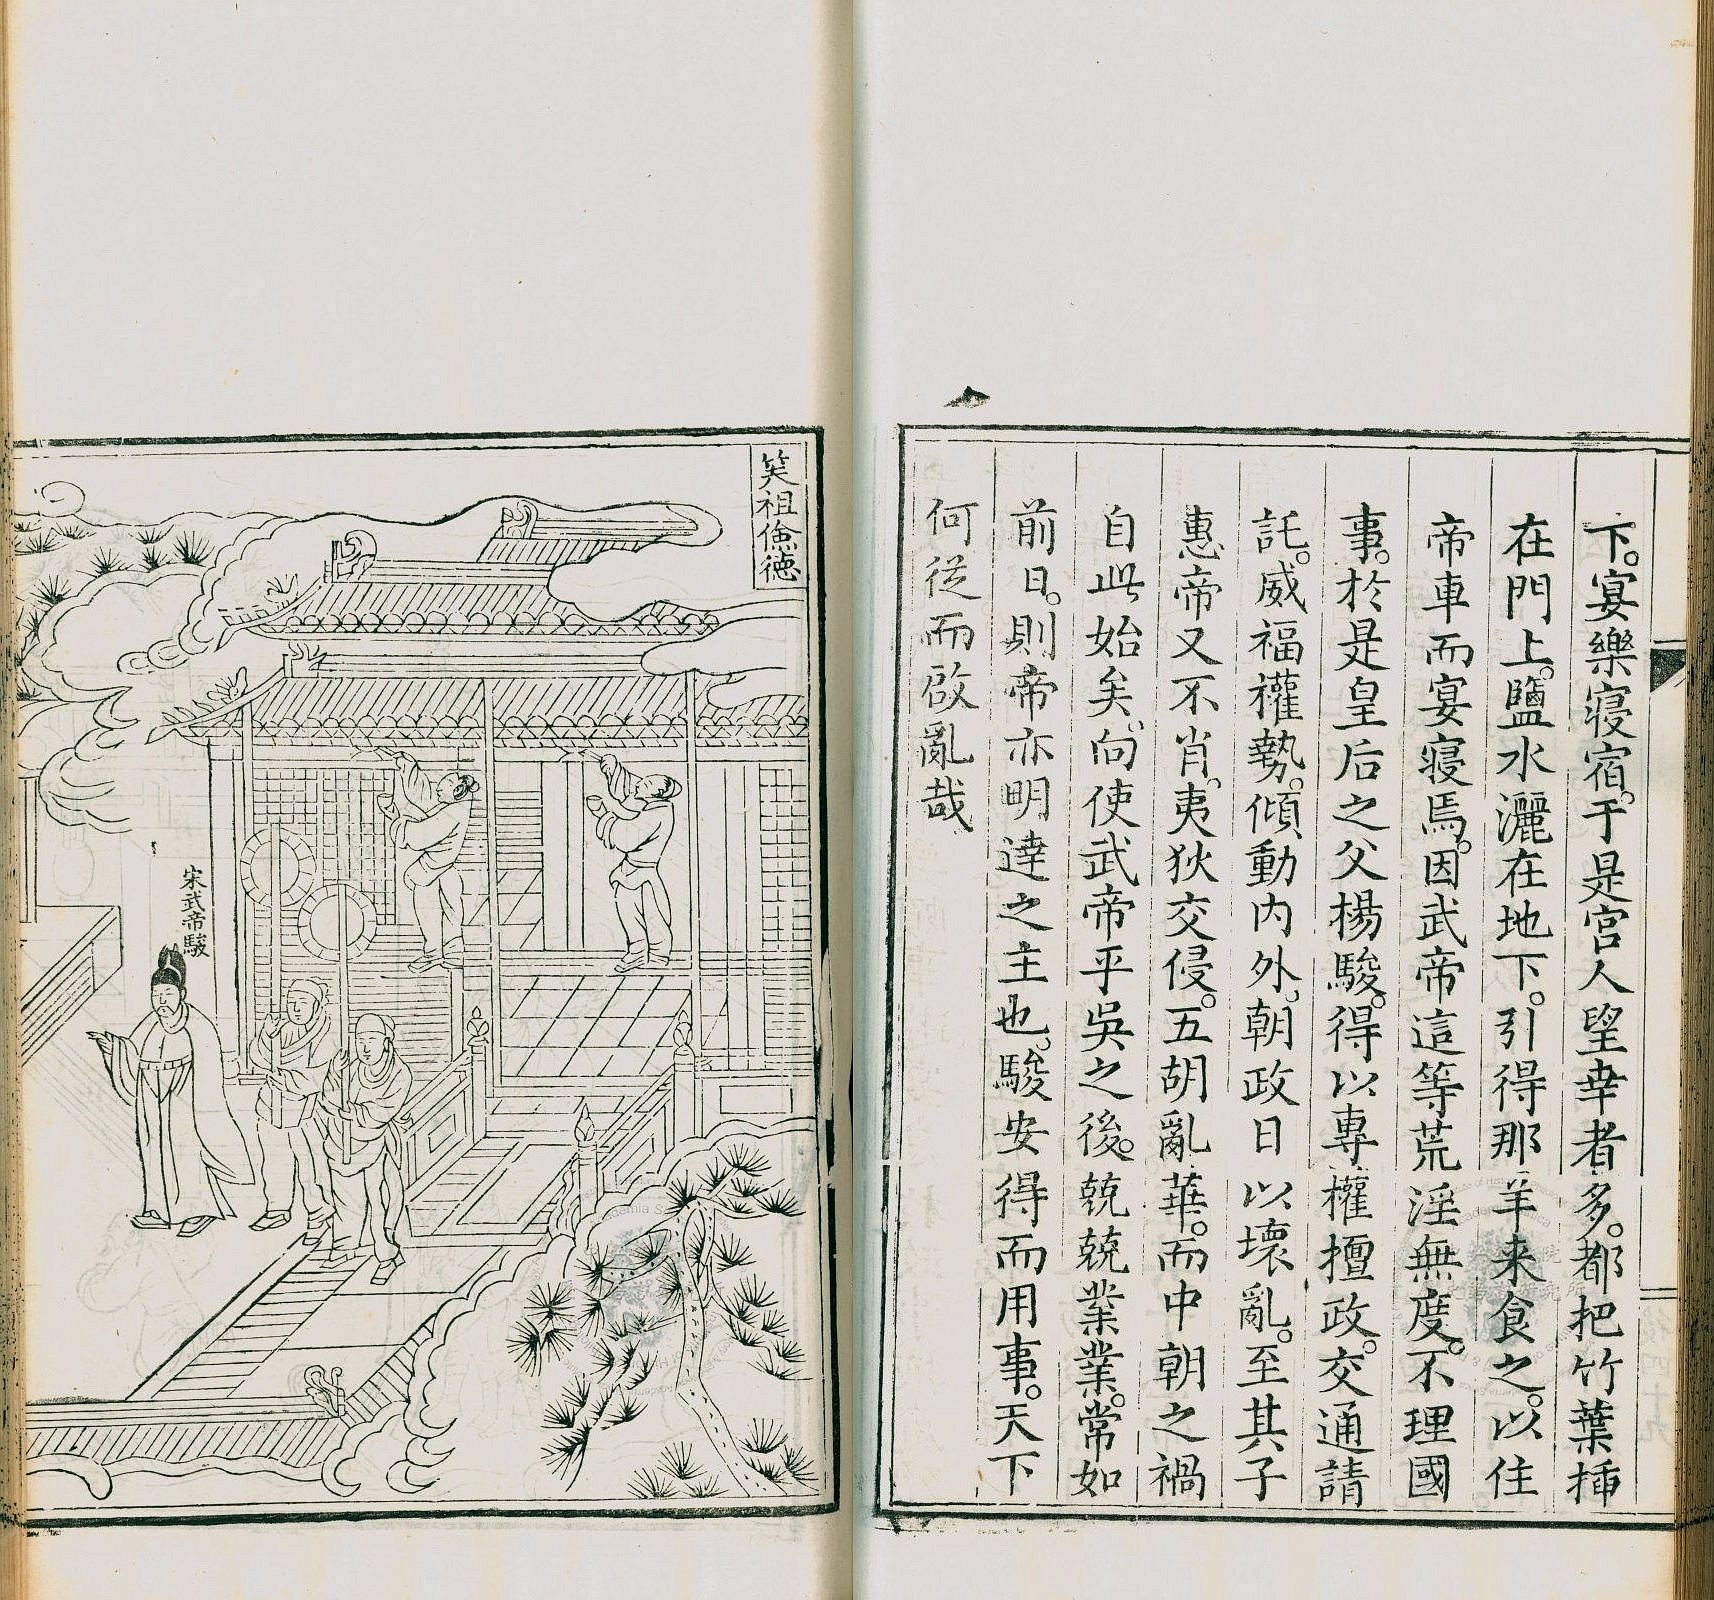 下。宴樂寢宿。于是宮人望幸者多。都把竹葉揷
在門上。鹽水灑在地下。引得那羊来食之。以住
帝車而宴寢焉。因武帝這等荒淫無度。不理國
事。於是皇后之父楊駿。得以專權擅政。交通請
託。威福權勢。傾動内外。朝政日以壞亂。至其子
惠帝又不肖。夷狄交侵。五胡亂華。而中朝之禍
自此始矣。向使武帝平吳之後。兢兢業業。常如
前日。則帝亦明達之主也。駿安得而用事。天下
何從而啟亂哉
笑祖儉徳
宋武帝駿